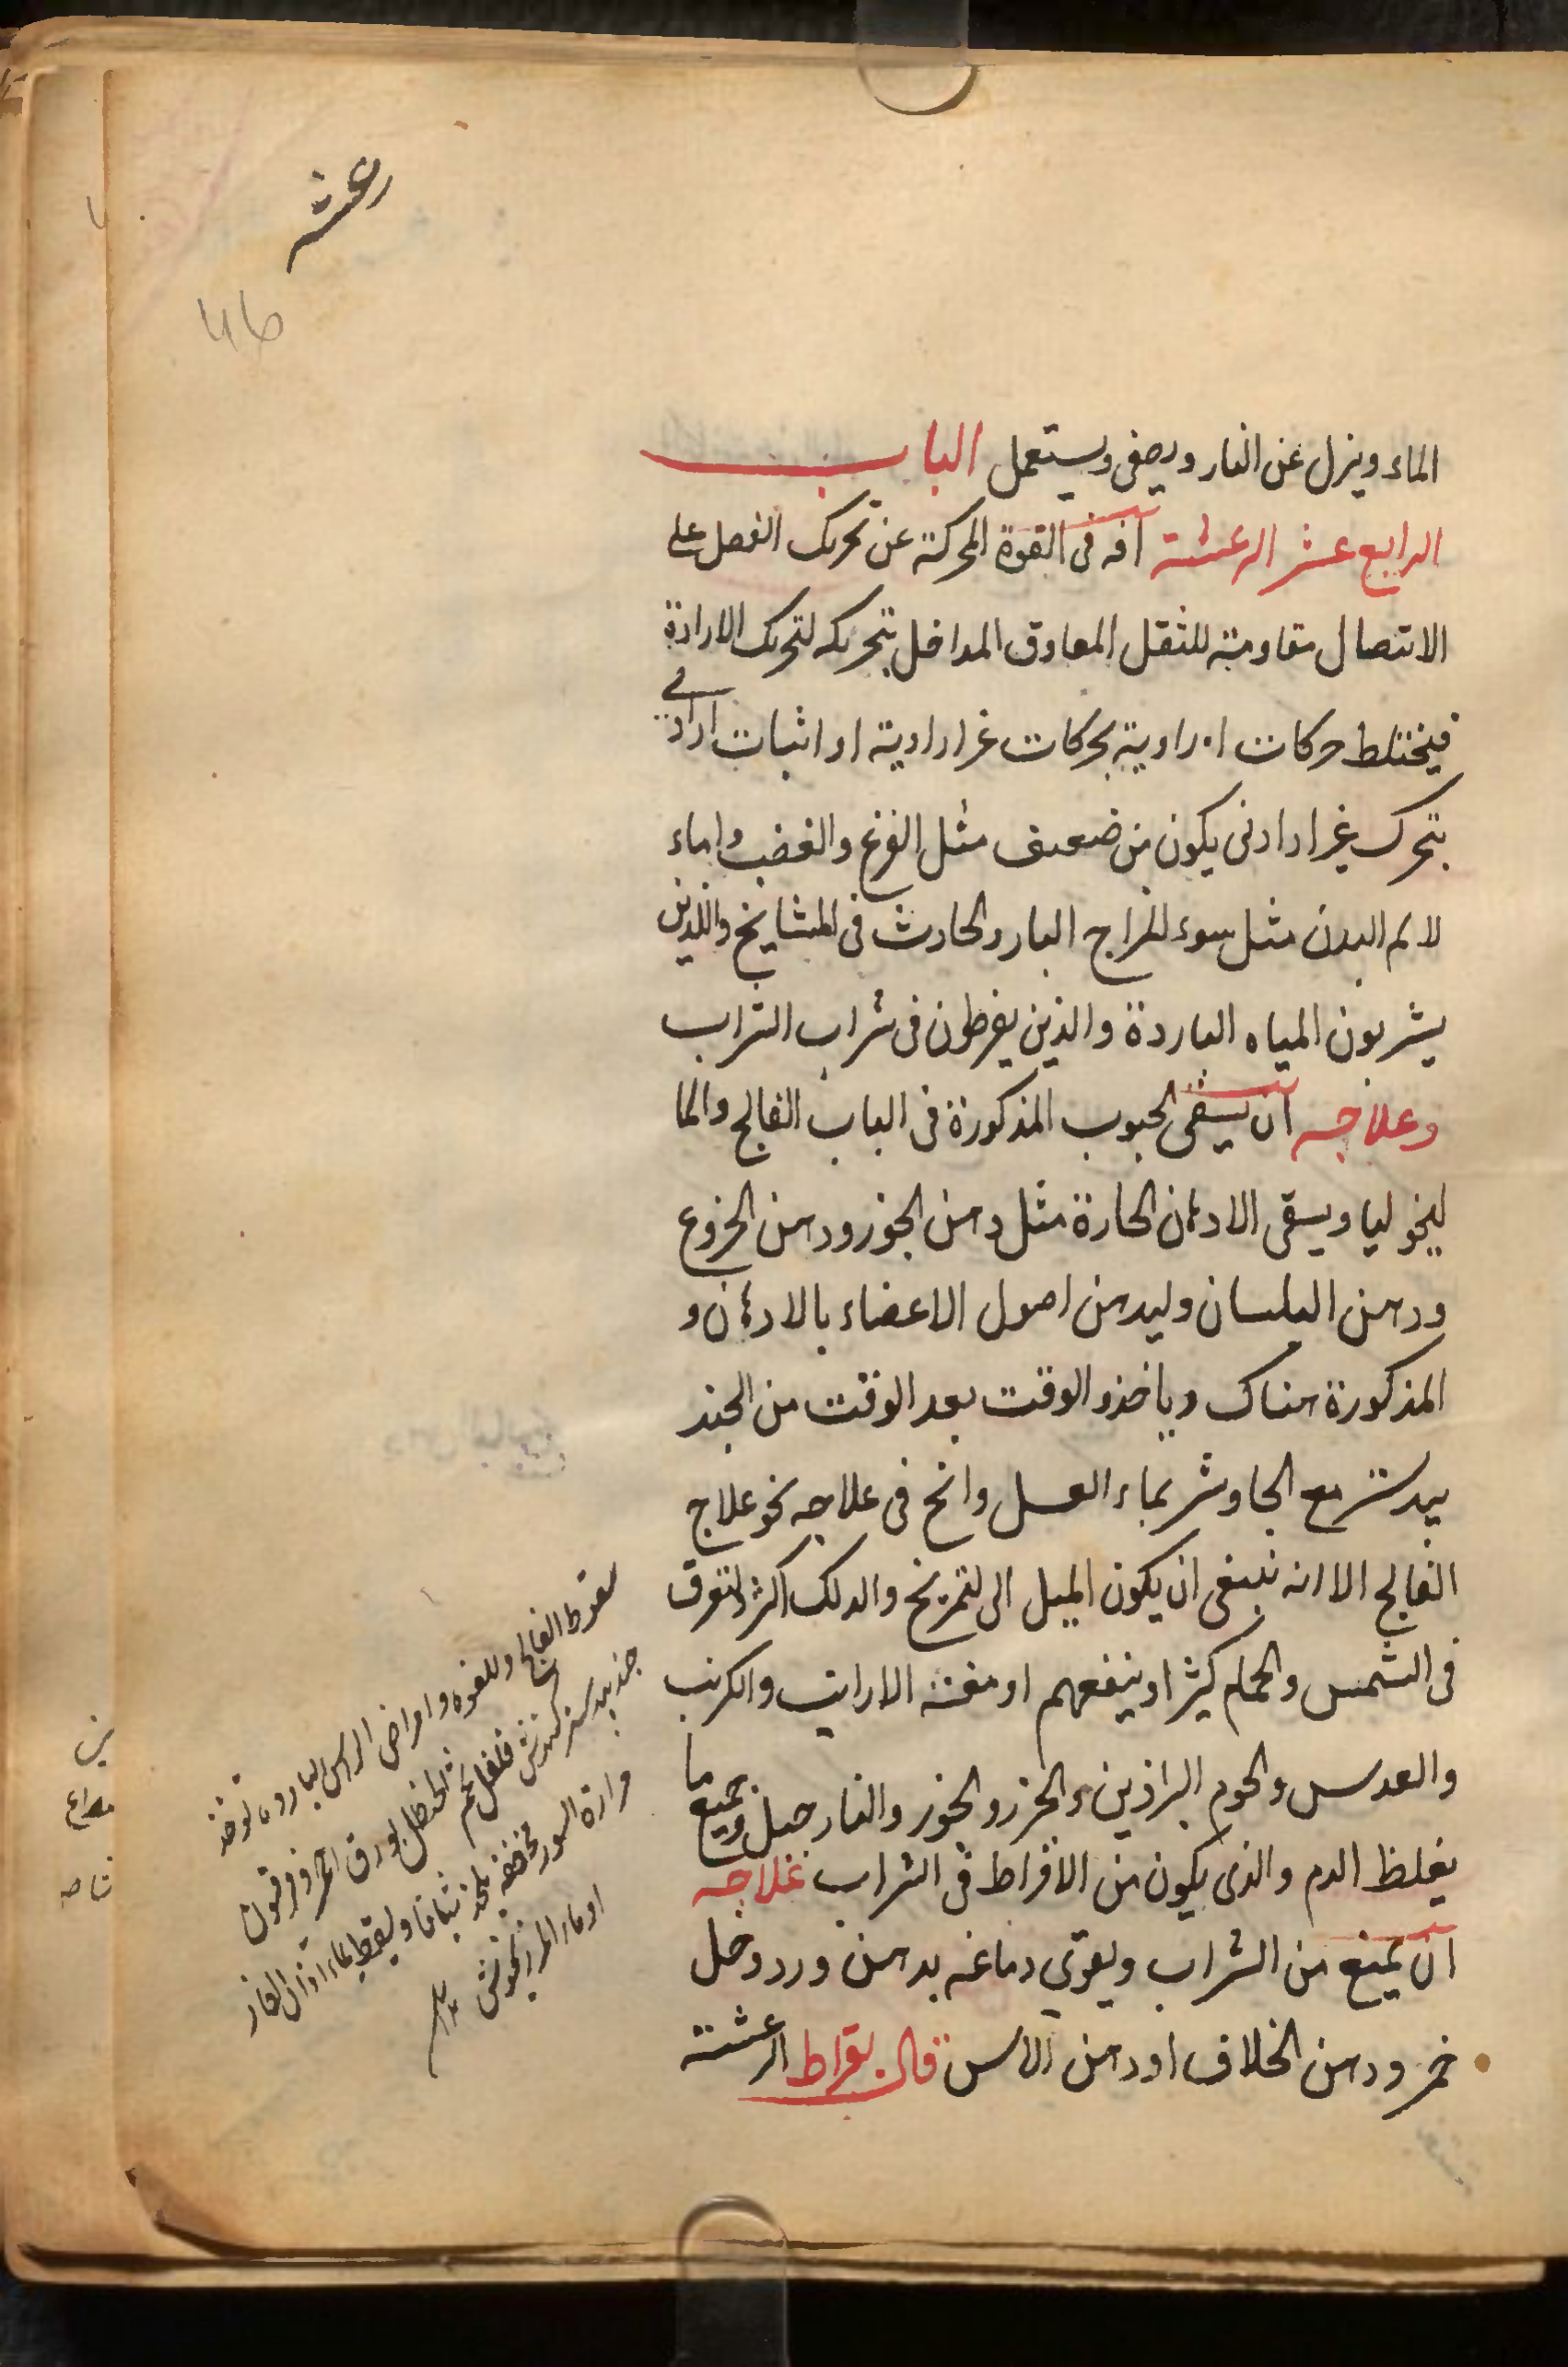 رعشه
46
الماء وينزل عن النار ويصفى ويستعمل الباب
الرابع عشر الرعشة آفه فى القوة المحركة عن تحريك العضل على
الاتصال مقاومة للثقل المعاوق المداخل بتحريكه لتحريك الارادة
فيختلط حركات ارادية بحركات غير ارادية او اثبات ارادى
بتحرك غير ارادى يكون من ضعيف مثل الفزع والغضب واما
لالم البدن مثل سوء المزاج البارد الحادث فى المشايخ واللذين
يشربون المياه الباردة والذين يفرطون فى شراب التراب
وعلاجه ان يسقى الحبوب المذكورة فى الباب الفالج والما
ليخوليا ويسقى الادهان الحارة مثل دهن الجوز ودهن الخروع
ودهن البلسان وليدهن اصول الاعضاء بالادهان و
المذكورة هناك وياخذ والوقت بعد الوقت من الجند
بيدستر مع الجاوشر بماء العسل وانح فى علاجه نحو علاج
الفالج الا انه ينبغى ان يكون الميل الى التمريخ والدلك اكثر والتعرق
فى الشمس والحمام كثيرا وينفعهم ادمغة الارانب والكرنب
والعدس ولحوم البراذين والجزر والجوز والنارجيل وجميع ما
يغلظ الدم والذى يكون من الافراط فى الشراب علاجه
ان يمنع من الشراب ويقوي دماغه بدهن ورد وخل
خمر ودهن الخلاف او دهن الاس قال بقراط الرعشة
سعوط الفالج واللقوه وامراض الراس البارده توخذ
جند بيدستر كندش فلفل شحم الحنظل بورق احمر وفرفيون
مرارة السور بماء اذان الفار
او ماء المرزنجوش